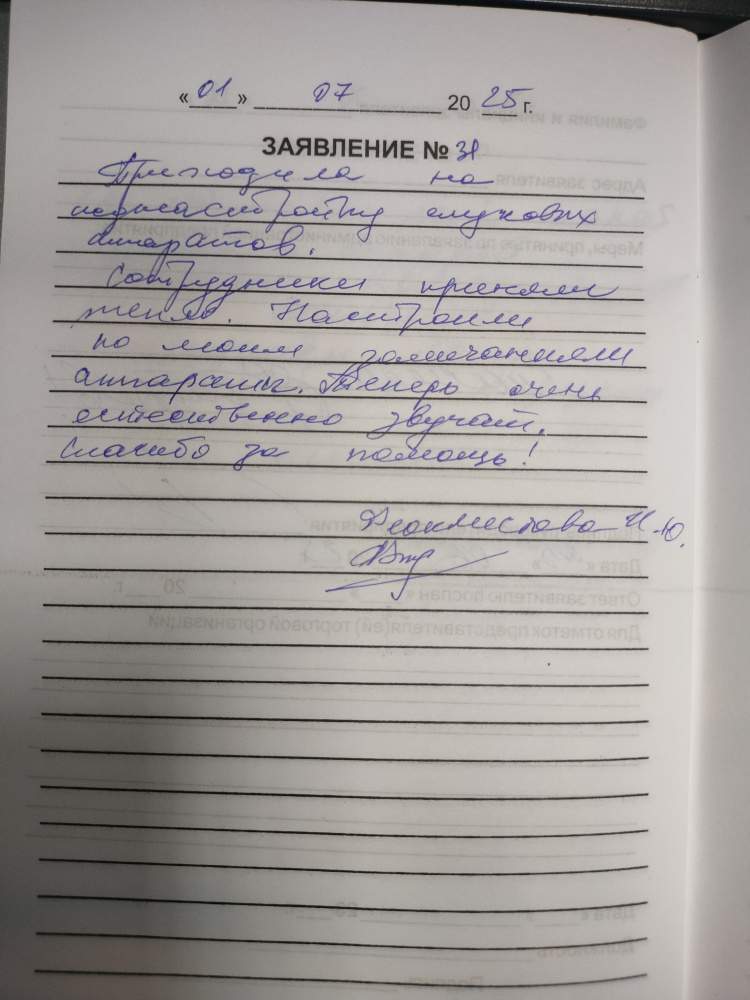 «01» 07 2025 г.
ЗАЯВЛЕНИЕ № 31
Приходила на
поднастройку слуховых
аппаратов.
Сотрудники приняли
меня. Настроили
по моим замечаниям
аппараты. Теперь очень
естественно звучат.
Спасибо за помощь!
Феоктистова И.Ю.